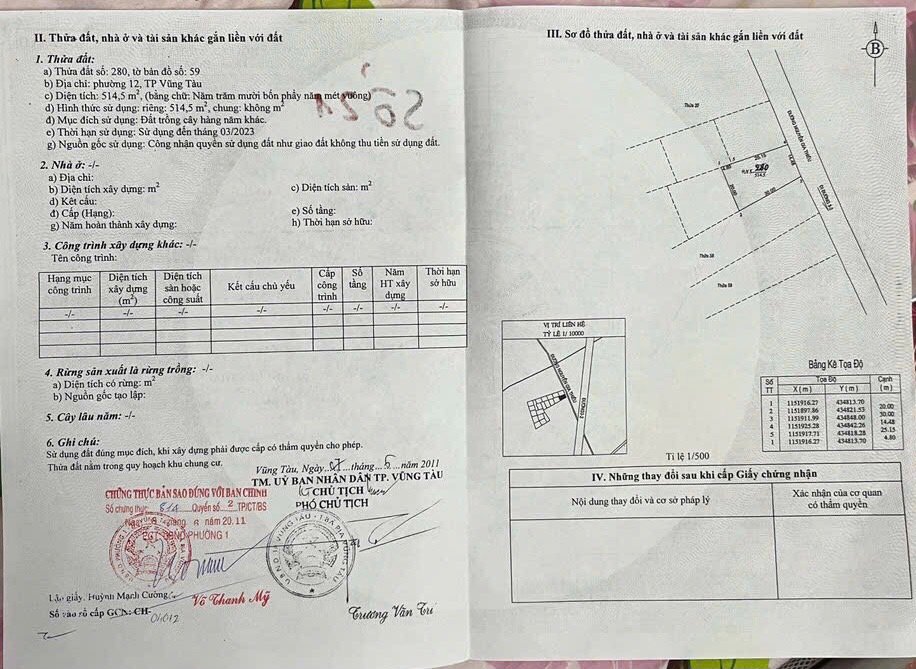 II. Thửa đất, nhà ở và tài sản khác gắn liền với đất
1. Thửa đất:
a) Thửa đất số: 280, tờ bản đồ số: 59
b) Địa chỉ: phường 12, TP Vũng Tàu
c) Diện tích: 514,5 m², (bằng chữ: Năm trăm mười bốn phẩy năm mét vuông)
d) Hình thức sử dụng: riêng: 514,5 m², chung: không m²
đ) Mục đích sử dụng: Đất trồng cây hàng năm khác.
e) Thời hạn sử dụng: Sử dụng đến tháng 03/2023
g) Nguồn gốc sử dụng: Công nhận quyền sử dụng đất như giao đất không thu tiền sử dụng đất.
2. Nhà ở: -/-
a) Địa chỉ:
b) Diện tích xây dựng: m²
c) Diện tích sàn: m²
d) Kết cấu:
đ) Cấp (Hạng):
e) Số tầng:
g) Năm hoàn thành xây dựng:
h) Thời hạn sở hữu:
3. Công trình xây dựng khác: -/-
Tên công trình:
Hạng mục công trình
Diện tích xây dựng (m²)
Diện tích sàn hoặc công suất
Kết cấu chủ yếu
Cấp công trình
Số tầng
Năm HT xây dựng
Thời hạn sở hữu
-/- -/- -/- -/- -/- -/- -/- -/-
4. Rừng sản xuất là rừng trồng: -/-
a) Diện tích có rừng: m²
b) Nguồn gốc tạo lập:
5. Cây lâu năm: -/-
6. Ghi chú:
Sử dụng đất đúng mục đích, khi xây dựng phải được cấp có thẩm quyền cho phép.
Thửa đất nằm trong quy hoạch khu chung cư.
Vũng Tàu, Ngày 07 tháng 6 năm 2011
TM. UỶ BAN NHÂN DÂN TP. VŨNG TÀU
CHỦ TỊCH
PHÓ CHỦ TỊCH
Trương Văn Trí
CHỨNG THỰC BẢN SAO ĐÚNG VỚI BẢN CHÍNH
Số chứng thực: Quyển số: 2 TP/CT/BS
Ngày tháng 8 năm 20.11
UBND PHƯỜNG 1
Võ Thanh Mỹ
Lập giấy: Huỳnh Mạnh Cường
Số vào sổ cấp GCN: CH-
01012
III. Sơ đồ thửa đất, nhà ở và tài sản khác gắn liền với đất
B
Thửa 37
ĐƯỜNG NGUYỄN GIA THIỀU
280
514,5
25.15
14.48
4.80
20.00
30.00
Thửa 58
Thửa 59
VỊ TRÍ LIÊN HỆ
TỶ LỆ 1/ 10000
ĐƯỜNG NGUYỄN GIA THIỀU
Bảng Kê Tọa Độ
Số TT
Tọa Độ
X ( m ) Y ( m )
Cạnh ( m )
1 1151916.27 434813.70
20.00
2 1151897.86 434821.53
30.00
3 1151911.99 434848.00
14.48
4 1151925.28 434842.26
25.15
5 1151917.71 434818.28
4.80
1 1151916.27 434813.70
Tỉ lệ 1/500
IV. Những thay đổi sau khi cấp Giấy chứng nhận
Nội dung thay đổi và cơ sở pháp lý
Xác nhận của cơ quan có thẩm quyền